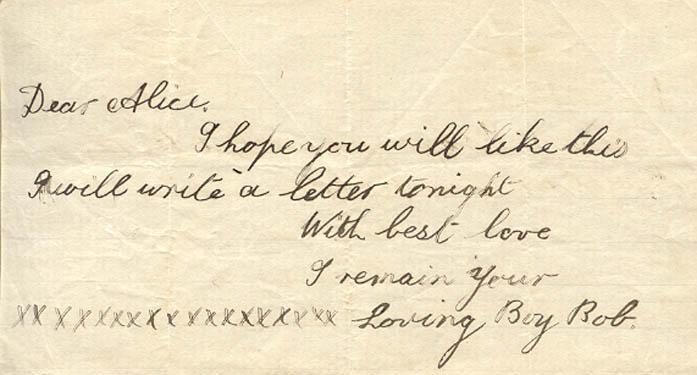 Dear Alice.
I hope you will like this
I will write a letter tonight
With best love
I remain Your
xx xxxxxxxxxxxxxxxxx Loving Boy Bob.